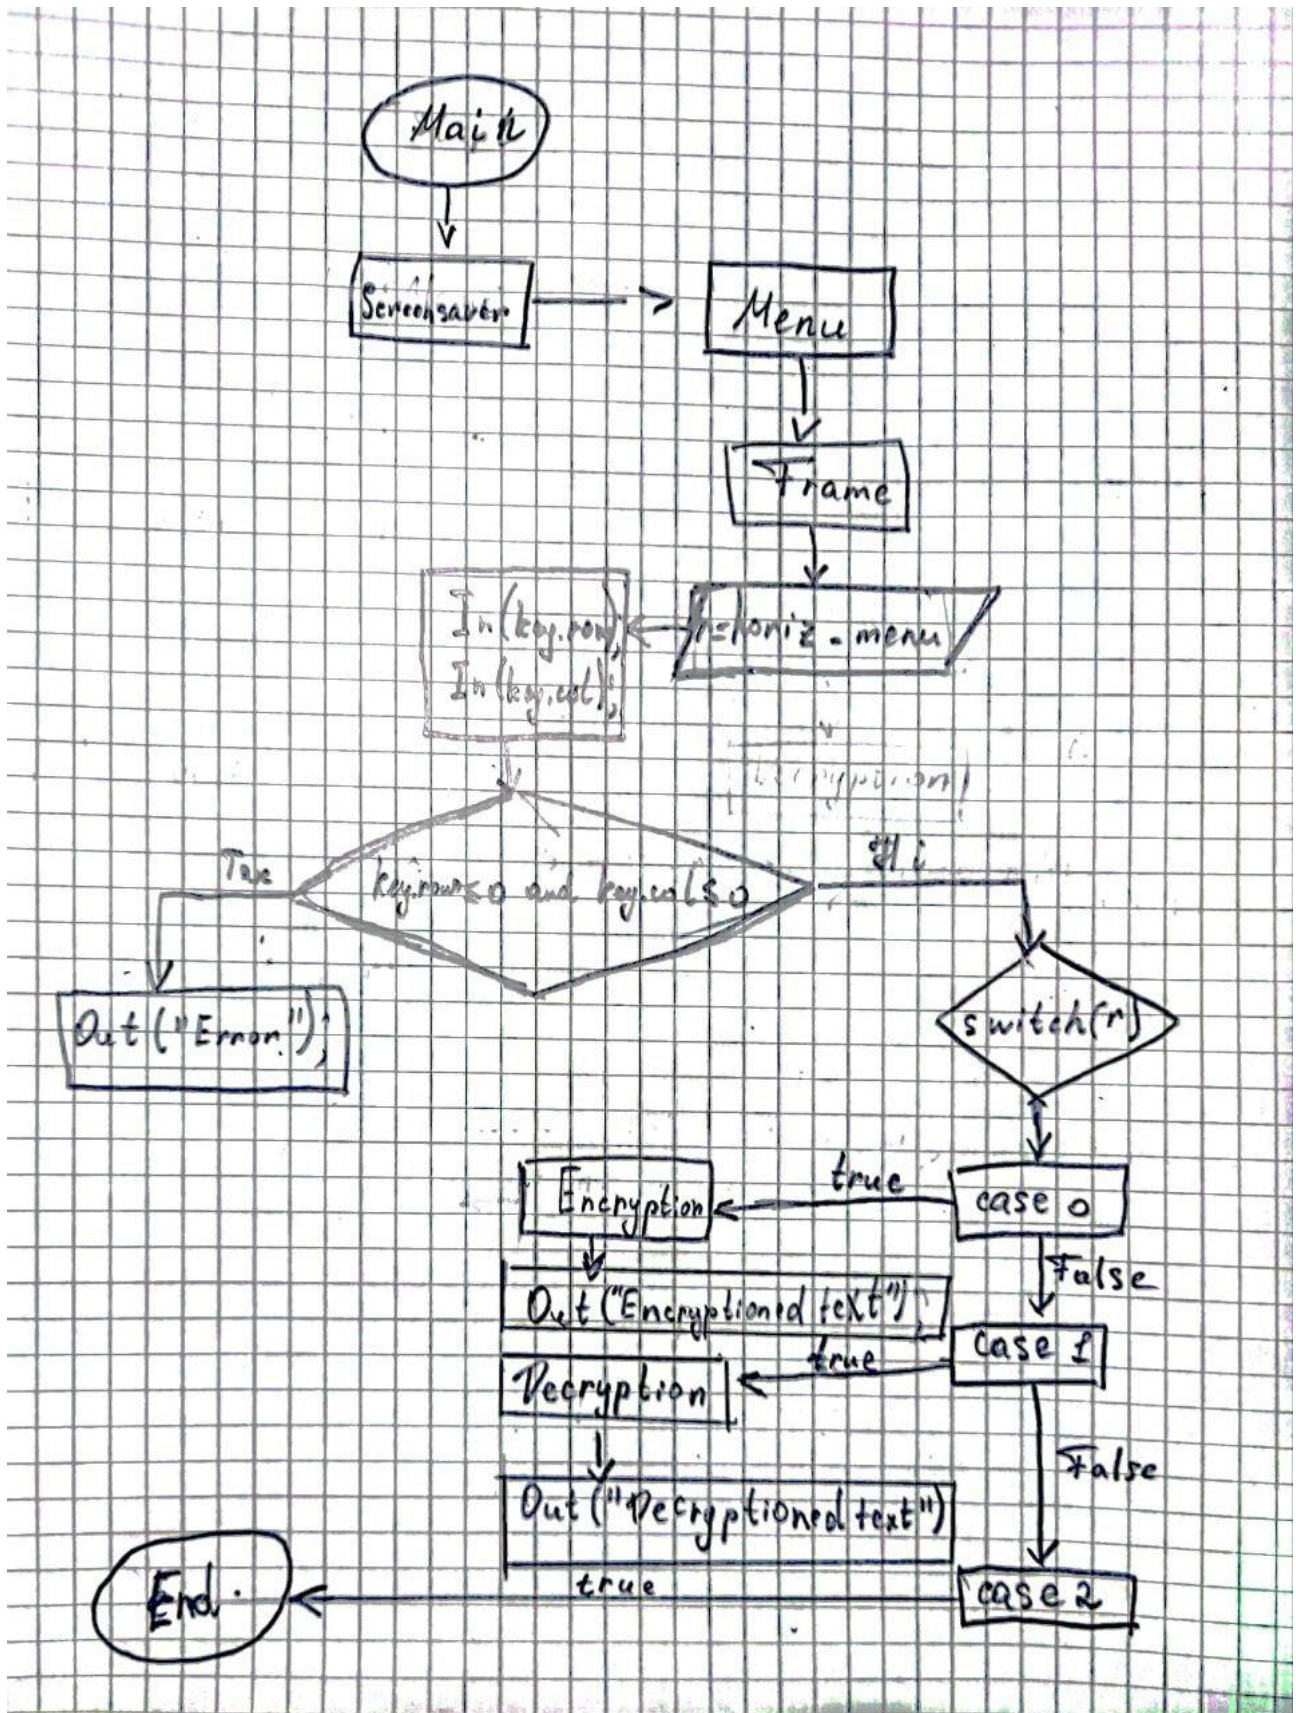 Main
Screensaver
Menu
Frame
r=horiz_menu
In(key.row);
In(key.col);
key.row≤0 and key.col≤0
Так
Ні
Out("Error");
switch(r)
case 0
true
Encryption
False
Out("Encryptioned text");
case 1
true
Decryption
False
Out("Decryptioned text")
case 2
true
End